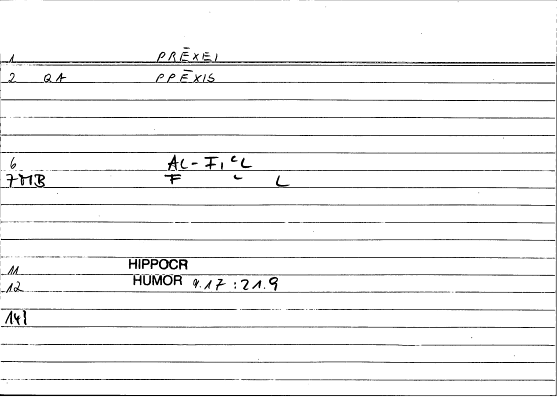 1 PRĒXEI
2 QA PPĒXIS
6 AL-FI,ʿL
7MB F ʿ L
11 HIPPOCR
12 HUMOR 9.17:21.9
14